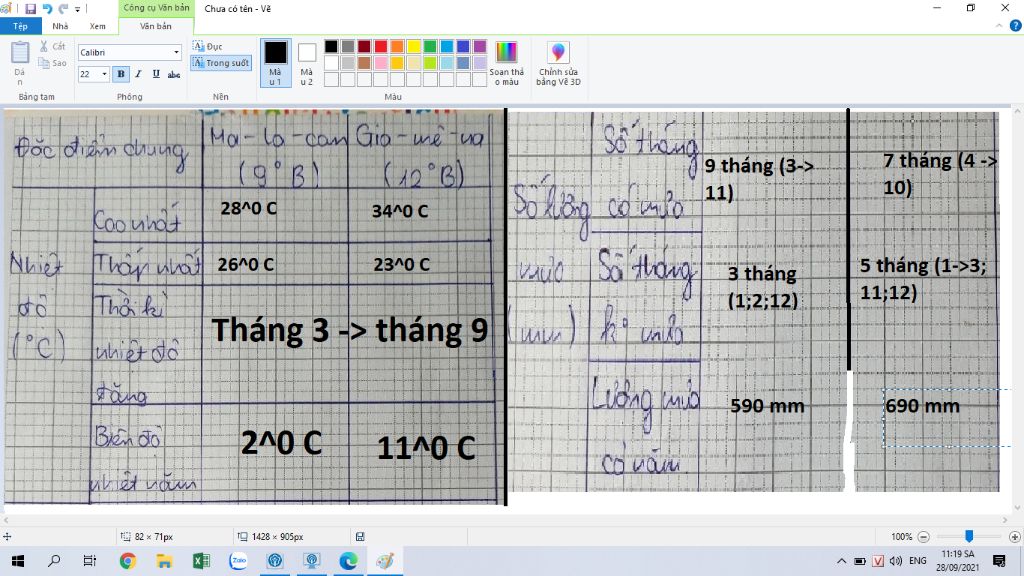 Công cụ Văn bản
Chưa có tên - Vẽ
Tệp
Nhà
Xem
Văn bản
Dá
n
Cắt
Sao
Bảng tạm
Calibri
22
B
I
U
abc
Phông
Đục
Trong suốt
Nền
Mà
u 1
Mà
u 2
Soạn thả
o màu
Màu
Chỉnh sửa
bằng Vẽ 3D
Đặc điểm chung
Ma-la-can
(9°B)
Gia-mê-na
(12°B)
Nhiệt
độ
(°C)
Cao nhất
28^0 C
34^0 C
Thấp nhất
26^0 C
23^0 C
Thời kì
nhiệt độ
tăng
Tháng 3 -> tháng 9
Biên độ
nhiệt năm
2^0 C
11^0 C
Số lượng
mưa
(mm)
Số tháng
có mưa
9 tháng (3->
11)
7 tháng (4 ->
10)
Số tháng
ko mưa
3 tháng
(1;2;12)
5 tháng (1->3;
11;12)
Lượng mưa
cả năm
590 mm
690 mm
82 × 71px
1428 × 905px
100%
Zalo
ENG
11:19 SA
28/09/2021